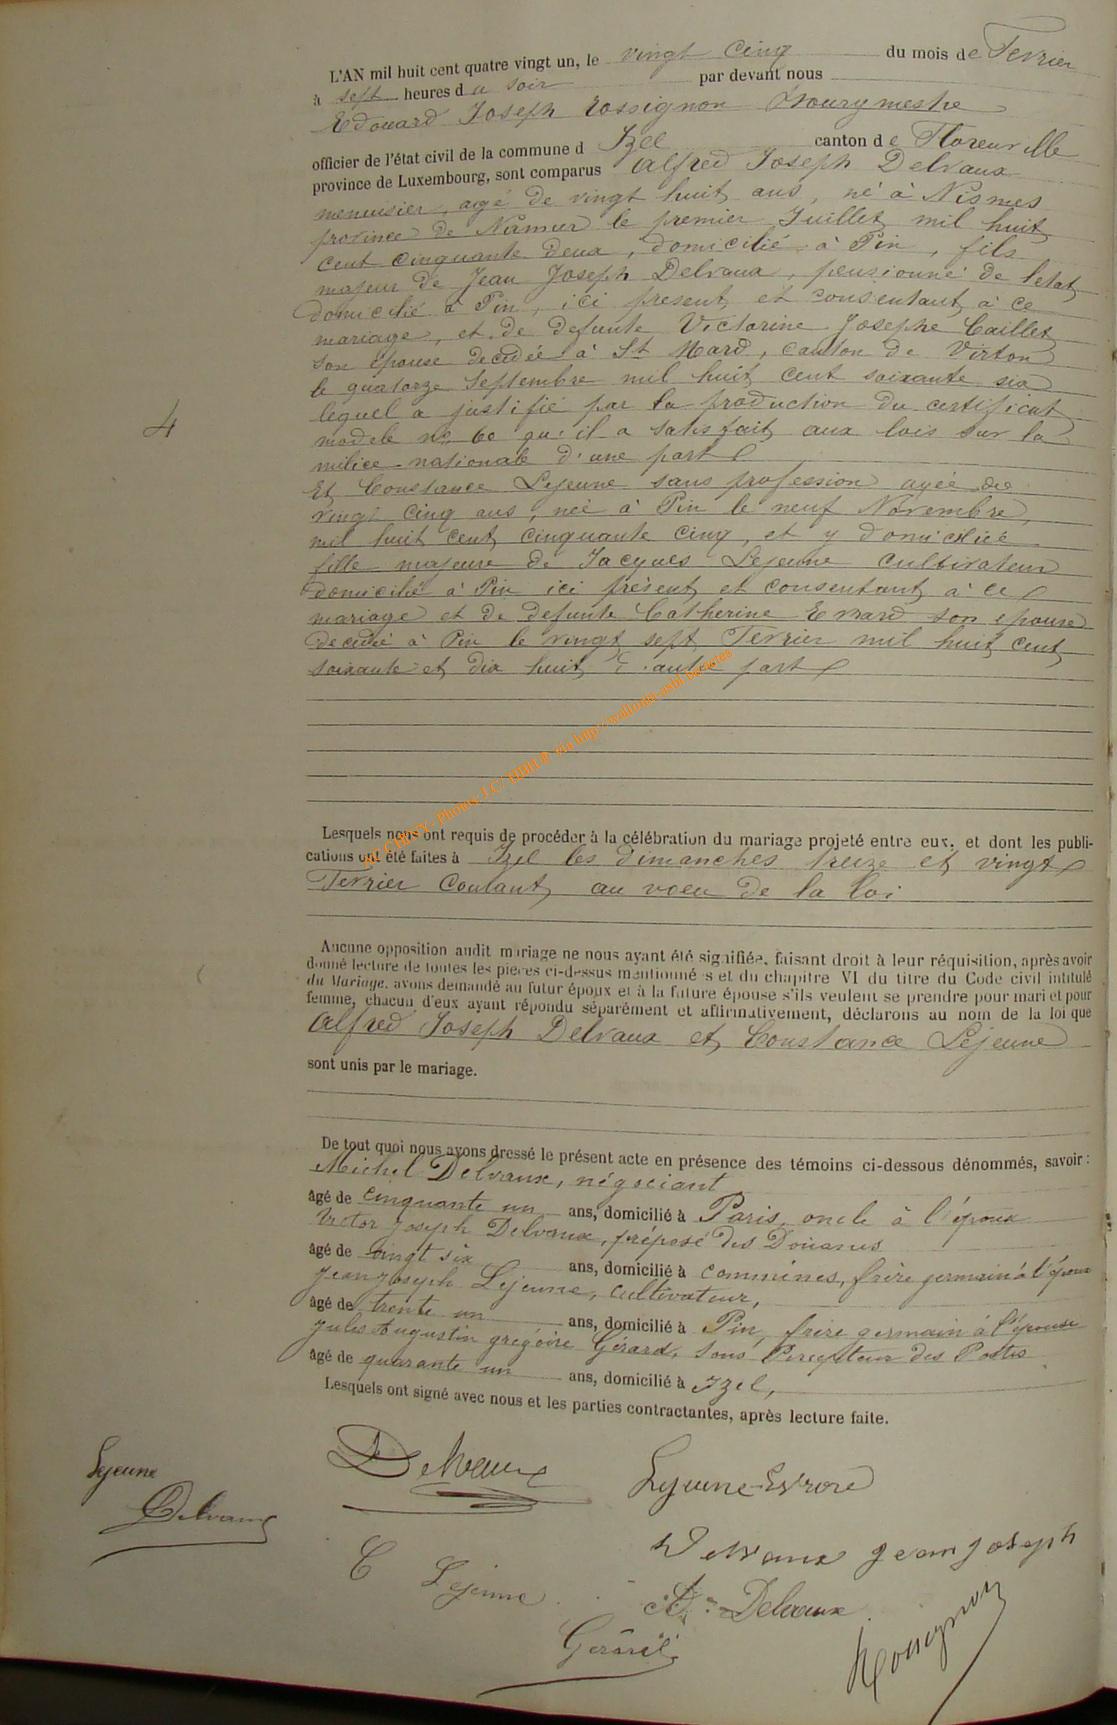 L'AN mil huit cent quatre vingt un, le vingt cinq du mois de Fevrier
à sept heures du soir par devant nous
Edouard Joseph Rossignon Bourgmestre
officier de l'état civil de la commune d Izel canton de Florenville
province de Luxembourg, sont comparus Alfred Joseph Delvaux
menuisier, agé de vingt huit ans, né à Nismes
province de Namur le premier Juillet mil huit
cent cinquante deux, domicilié à Pin, fils
majeur de Jean Joseph Delvaux, pensionné de l'etat
domicilié à Pin, ici present et consentant à ce
mariage, et de defunte Victorine Josephe Caillet
son épouse decedée à St Mard, canton de Virton
le quatorze Septembre mil huit cent soixante six
lequel a justifié par la production du certificat
modele no 60 qu'il a satisfait aux lois sur la
milice nationale d'une part
Et Constance Lejeune sans profession agée de
vingt cinq ans, née à Pin le neuf Novembre
mil huit cent cinquante cinq, et y domiciliée
fille majeure de Jacques Lejeune cultivateur
domicilié à Pin ici présent et consentant à ce
mariage et de defunte Catherine Evrard son épouse
decedée à Pin le vingt sept Fevrier mil huit cent
soixante et dix huit d'autre part
4
Lesquels nous ont requis de procéder à la célébration du mariage projeté entre eux, et dont les publi-
cations ont été faites à Izel les dimanches treize et vingt
Fevrier coulant, au voeu de la loi
Aucune opposition audit mariage ne nous ayant été signifiée, faisant droit à leur réquisition, après avoir
donné lecture de toutes les pièces ci-dessus mentionnées et du chapitre VI du titre du Code civil intitulé
du Mariage, avons demandé au futur époux et à la future épouse s'ils veulent se prendre pour mari et pour
femme, chacun d'eux ayant répondu séparément et affirmativement, déclarons au nom de la loi que
Alfred Joseph Delvaux et Constance Lejeune
sont unis par le mariage.
De tout quoi nous avons dressé le présent acte en présence des témoins ci-dessous dénommés, savoir :
Michel Delvaux, négociant
âgé de cinquante un ans, domicilié à Paris, oncle à l'époux
Victor Joseph Delvaux, préposé des Douanes
âgé de vingt six ans, domicilié à Commines, frère germain à l'époux
Jean Joseph Lejeune, cultivateur,
âgé de trente un ans, domicilié à Pin, frère germain à l'épouse
Jules Augustin grégoire Gérard, sous Percepteur des Postes
âgé de quarante un ans, domicilié à Izel,
Lesquels ont signé avec nous et les parties contractantes, après lecture faite.
Lejeune
Delvaux
Delvaux
Lejeune-Evrard
Delvaux Jean Joseph
C Lejeune
A. Delvaux
Gérard
Rossignon